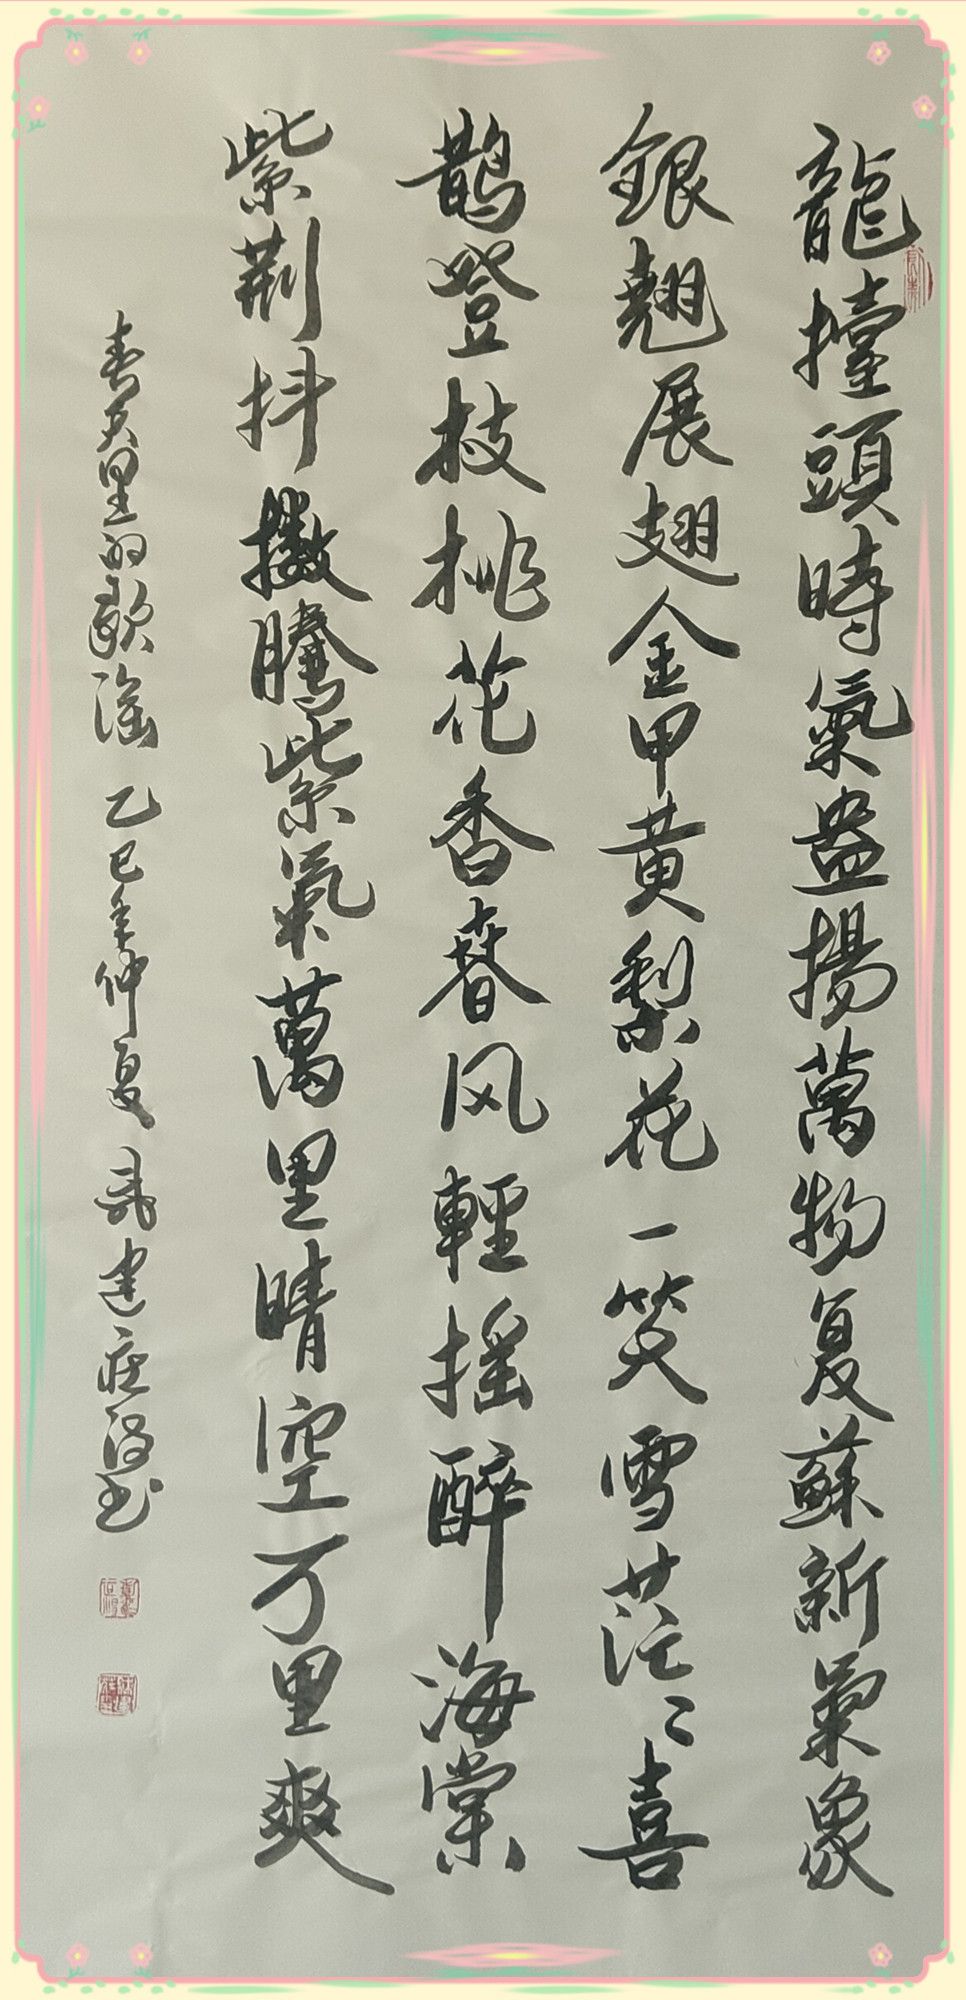 龍擡頭時氣益揚萬物复蘇新氣象
銀翹展翅金甲黄梨花一笑雪茫〻喜
鵲登枝桃花香春风輕摇醉海棠
紫荆抖擞騰紫氣萬里晴空万里爽
春天里的歌谣 乙巳年仲夏 建庄 书